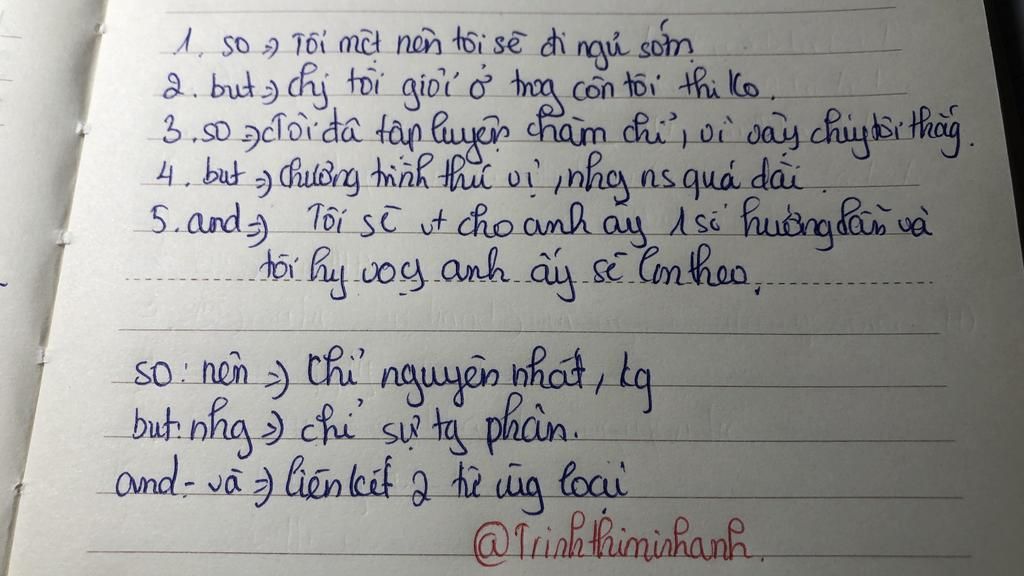 1. so => Tôi mệt nên tôi sẽ đi ngủ sớm.
2. but => Chị tôi giỏi ở trng còn tôi thì ko.
3. so => Tôi đã tập luyện chăm chỉ, vì vậy chúng tôi thắng.
4. but => Chương trình thú vị, nhg ns quá dài.
5. and => Tôi sẽ vt cho anh ấy 1 số hướng dẫn và
tôi hy vọg anh ấy sẽ làm theo.
so: nên => Chỉ nguyên nhất, kq
but: nhg => chỉ sự tg phản.
and - và => liên kết 2 từ cùg loại
@Trinhthiminhanh.